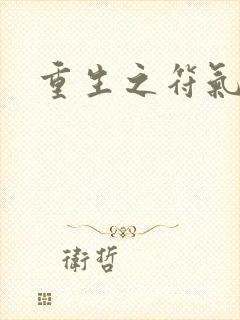 重生之符氣
衛哲